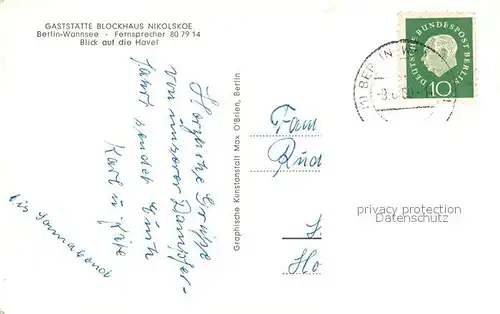 GASTSTÄTTE BLOCKHAUS NIKOLSKOE
Berlin-Wannsee · Fernsprecher 80 79 14
Blick auf die Havel
Herzliche Grüsse
von unserer Dampfer-
fahrt sendet Euch
Karl u. Käte
bis Sonnabend
Graphische Kunstanstalt Max O'Brien, Berlin
Fam
DEUTSCHE BUNDESPOST BERLIN
10
privacy protection
Datenschutz